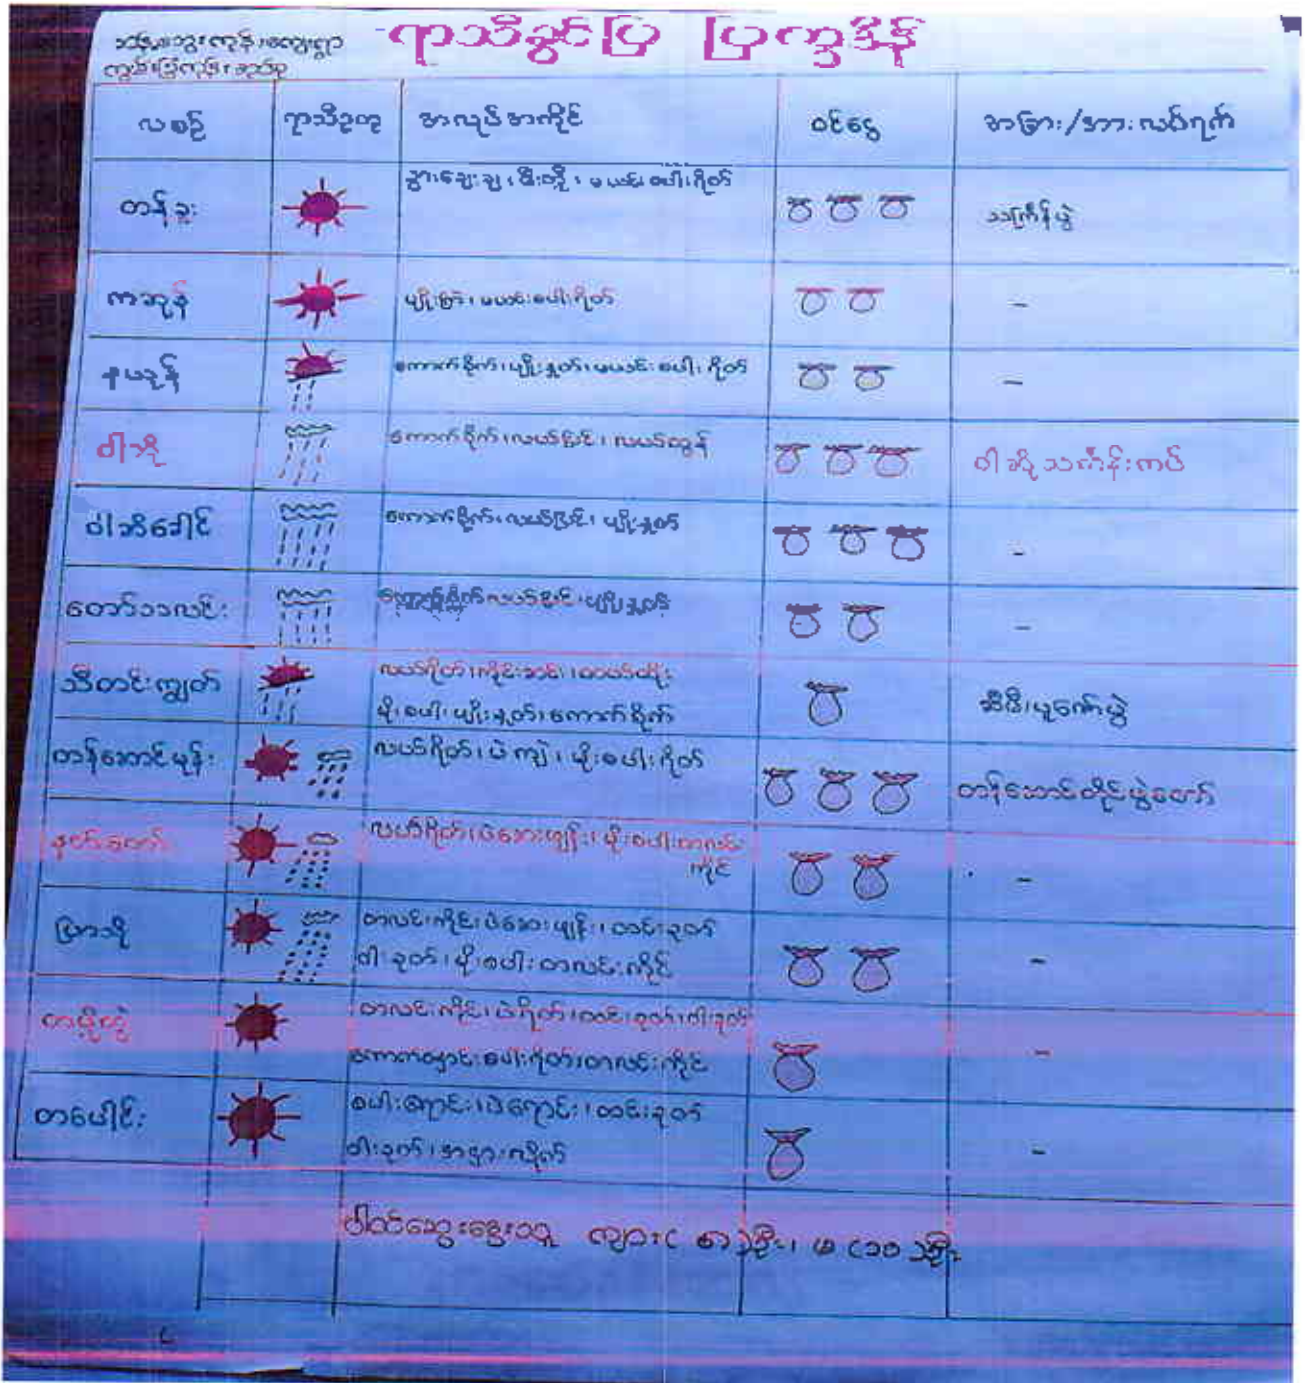 ရာသီခွင်ပြ ပြက္ခဒိန်
လစဉ် ရာသီဥတု အလုပ်အကိုင် ဝင်ငွေ အခြား/အားလပ်ရက်
တန်ခူး နွားချေးချ၊ မီးတို့၊ မယင်းစပါးရိတ် သင်္ကြန်ပွဲ
ကဆုန် ပျိုးကြဲ၊ မယင်းစပါးရိတ် -
နယုန် ကောက်စိုက်၊ ပျိုးနှုတ်၊ မယင်းစပါးရိတ် -
ဝါဆို ကောက်စိုက်၊ လယ်ပြင်၊ လယ်ထွန် ဝါဆိုသင်္ကန်းကပ်
ဝါခေါင် ကောက်စိုက်၊ လယ်ပြင်၊ ပျိုးနှုတ် -
တော်သလင်း ကောက်စိုက် လယ်ပြင်၊ ပျိုးနှုတ် -
သီတင်းကျွတ် လယ်ရိတ်၊
မိုးစပါးပျိုးနှုတ်၊ ကောက်စိုက် ဆီမီးပူဇော်ပွဲ
တန်ဆောင်မုန်း လယ်ရိတ်၊ ပဲကြဲ၊ မိုးစပါးရိတ် တန်ဆောင်တိုင်ပွဲတော်
နတ်တော် လယ်ရိတ်၊ ပဲဆေးဖျန်း၊ မိုးစပါးတလင်း
ကိုင် -
ပြာသို တလင်းကိုင်၊ ပဲဆေးဖျန်း၊ ထင်းခုတ်
ဝါးခုတ်၊ မိုးစပါးတလင်းကိုင် -
တပို့တွဲ တလင်းကိုင်၊ ပဲရိတ်၊ ထင်းခုတ်၊ ဝါးခုတ်
စပါးရိတ်၊ တလင်းကိုင် -
တပေါင်း စပါးရောင်း၊ ပဲရောင်း၊ ထင်းခုတ်
ဝါးခုတ်၊ -
ပါဝင်ဆွေးနွေးသူ ကျား